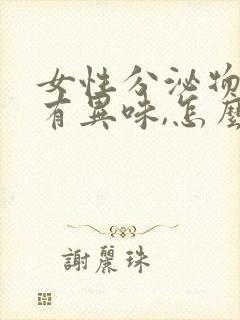 女性分泌物
有異味,怎麼
謝麗珠